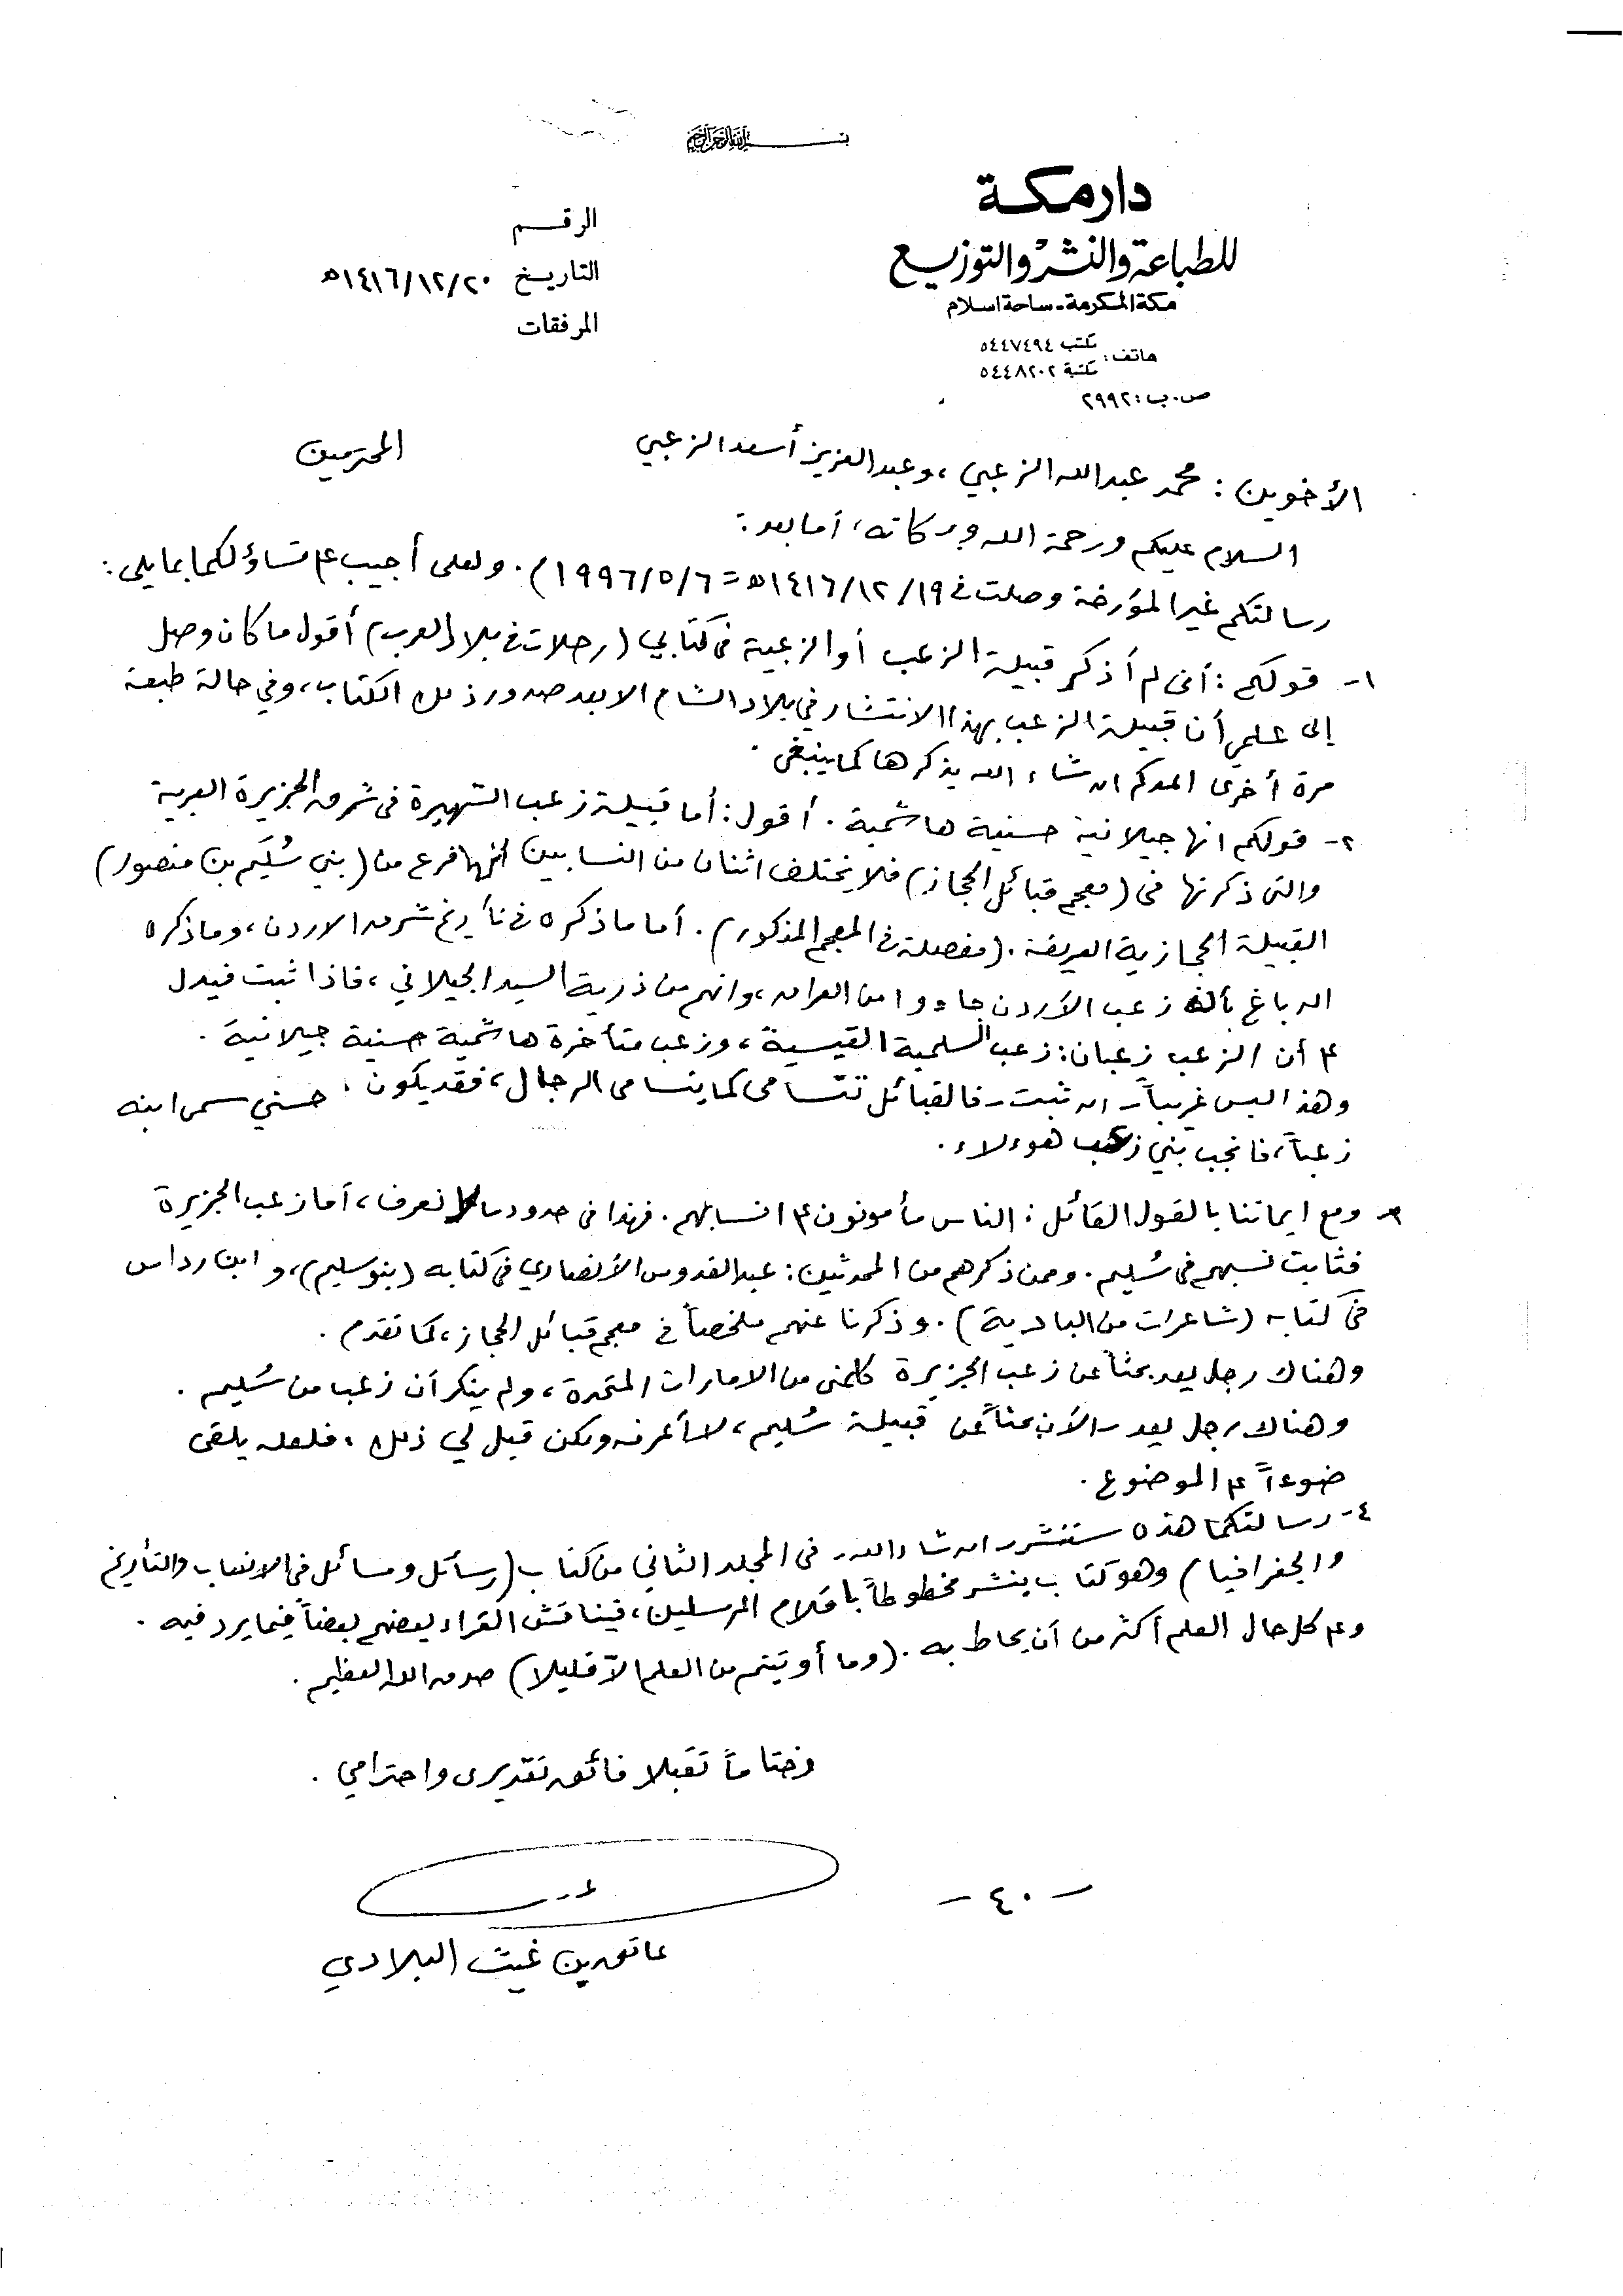 بسم الله الرحمن الرحيم
دار مكة
للطباعة والنشر والتوزيع
مكة المكرمة - ساحة اسلام
هاتف: مكتب ٥٤٤٧٤٩٤
مكتبة ٥٤٤٨٢٠٢
ص.ب: ٢٩٩٢
الرقم
التاريخ ٢٠/١٢/١٤١٦ه
المرفقات
الأخوين: محمد عبدالله الزعبي، وعبدالعزيز أسعد الزعبي المحترمين
السلام عليكم ورحمة الله وبركاته، أما بعد:
رسالتكم غير المؤرخة وصلت في ١٩/١٢/١٤١٦ه = ٦/٥/١٩٩٦). ولعلى أجيب على تساؤلكما بما يلي:
١- قولكم: أنى لم أذكر قبيلة الزعب أو الزعبية في كتابي (رحلات في بلاد العرب) أقول ما كان وصل
إلى علمي أن قبيلة الزعب بهذا الانتشار في بلاد الشام الا بعد صدور ذلك الكتاب، وفي حالة طبعه
مرة أخرى ان شاء الله يذكرها كما ينبغى.
٢- قولكم انها جيلانية حسنية هاشمية. أقول: أما قبيلة زعب الشهيرة فى شرق الجزيرة العربية
والتى ذكرتها فى (معجم قبائل الحجاز) فلا يختلف اثنان من النسابين أنها فرع من (بني سُلَيم بن منصور)
القبيلة الحجازية العريقة. (مفصلة في المعجم المذكور). أما ما ذكره في تأريخ شرق الاردن، وما ذكره
الدباغ بأن زعب الأردن جاءوا من العراق، وانهم من ذرية السيد الجيلاني، فاذا ثبت فيدل
على أن الزعب زعبان: زعب السلمية القيسية، وزعب متأخرة هاشمية حسنية جيلانية.
وهذا ليس غريباً - ان ثبت - فالقبائل تتسامى كما يتسامى الرجال، فقد يكون حسني سمى ابنه
زعباً، فانجب بني زعب هوءلاء.
٣- ومع ايماننا بالقول القائل: الناس مأمونون على انسابهم. فهذا في حدود ما لا نعرف، أما زعب الجزيرة
فثابت نسبهم في سُليم. وممن ذكرهم من المحدثين: عبدالقدوس الأنصاري في كتابه (بنو سليم)، و ابن رداس
في كتابه (شاعرات من البادية). وذكرنا عنهم ملخصاً في معجم قبائل الحجاز، كما تقدم.
وهناك رجل يعد بحثاً عن زعب الجزيرة كلمنى من الامارات المتحدة، ولم ينكر أن زعبا من سُليم.
وهناك رجل يعد - الآن بحثاً عن قبيلة سُليم، لا أعرفه ولكن قيل لي ذلك، فلعله يلقى
ضوءاً على الموضوع.
٤- رسالتكما هذه ستنشر - ان شاء الله - في المجلد الثاني من كتاب (رسائل ومسائل في الانساب والتأريخ
والجغرافيا) وهو كتاب ينشر مخطوطاً بأقلام المرسلين، فيناقش القراء بعضهم بعضاً فيما يرد فيه.
وعلى كل حال العلم أكثر من أن يحاط به. (وما أوتيتم من العلم الاّ قليلا) صدق الله العظيم.
وختاماً تقبلا فائق تقديرى واحترامي.
- ٤٠ -
عاتق بن غيث البلادي